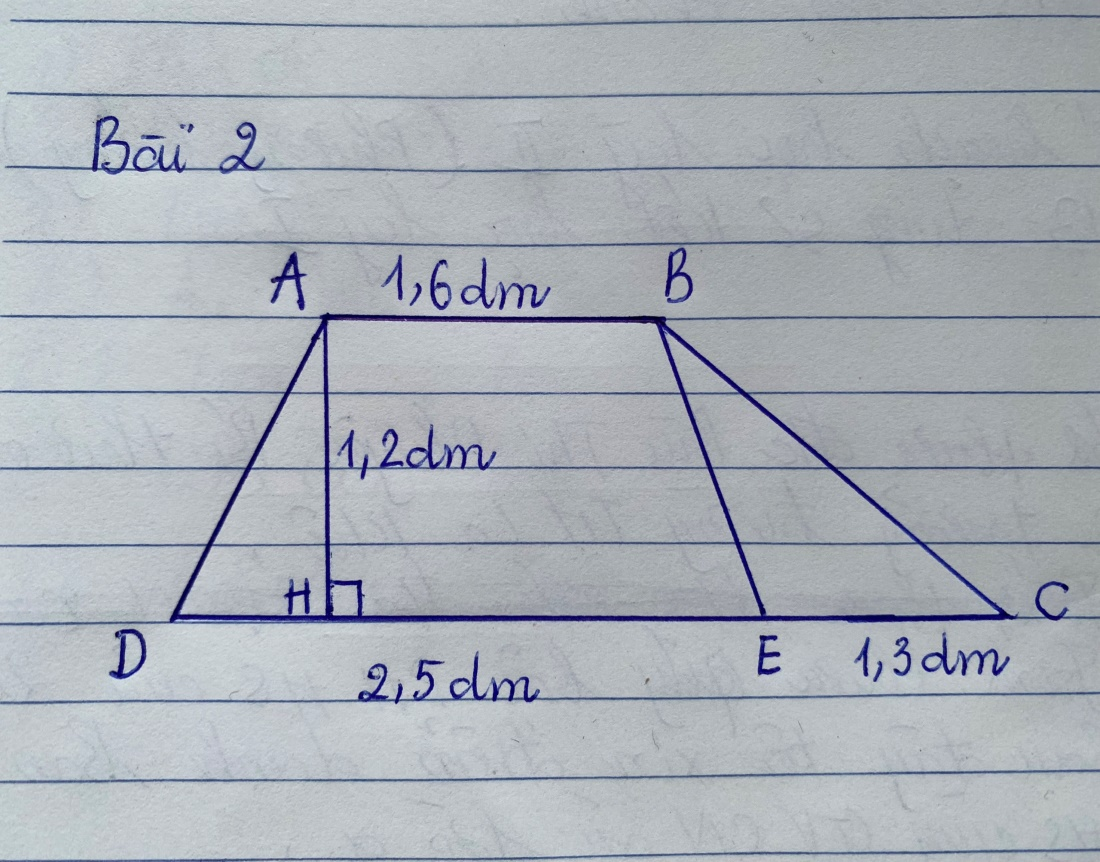 Bài 2
A 1,6dm B
1,2dm
H
D E C
2,5dm 1,3dm